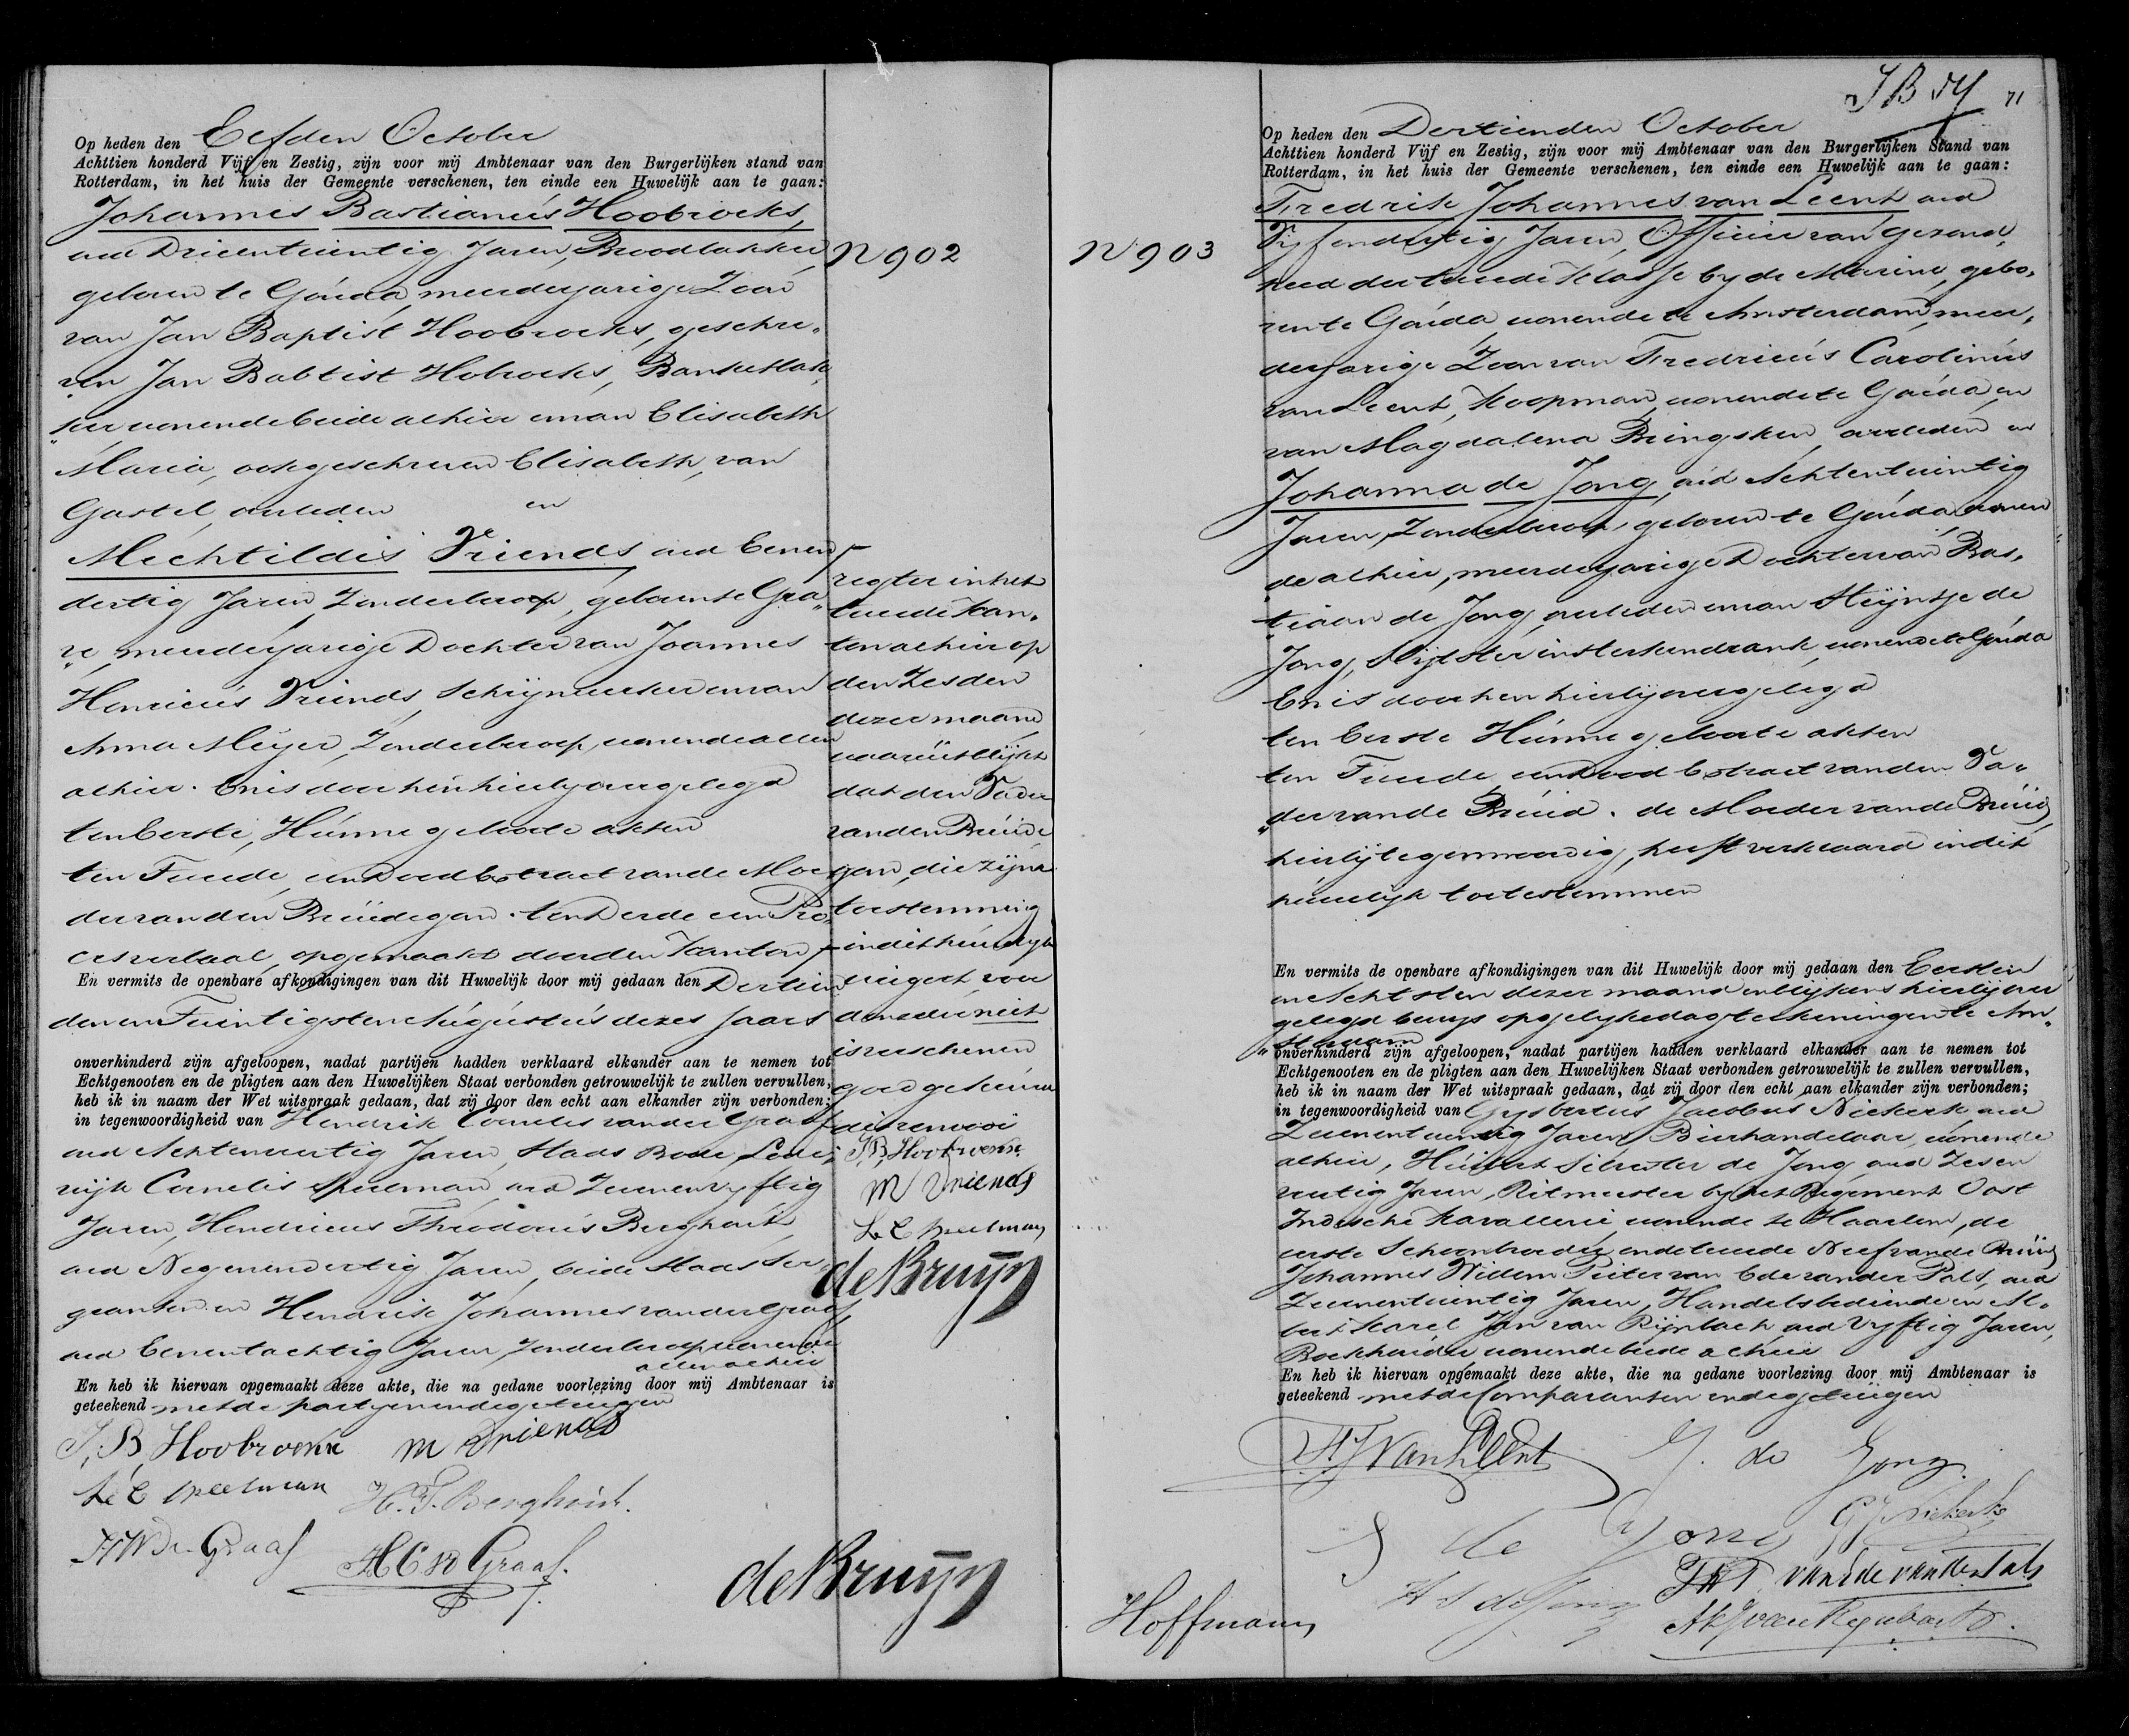 Op heden den Elfden October
Achttien honderd Vijf en Zestig, zijn voor mij Ambtenaar van den Burgerlijken stand van
Rotterdam, in het huis der Gemeente verschenen, ten einde een Huwelijk aan te gaan:
Johannes Bastianus Hoobroeks,
oud Drieentwintig Jaren, Broodbakker,
geboren te Gouda, meerderjarige Zoon
van Jan Baptist Hoobroeks, geschre„
ven Jan Babtist Hobroeks, Banketbak„
„ker wonende beide alhier en van Elisabeth
Maria, ook geschreven Elisabeth, van
Gastel, overleden en
Mechtildis Vriends oud Eenen
dertig Jaren, Zonder beroep, geboren te Gra„
„ve, meerderjarige Dochter van Joannes
Henricus Vriends, Schijnwerker en van
Anna Meijer, Zonder beroep, wonende allen
alhier. En is door hen hierbij overgelegd
ten Eerste, Hunne geboorte akten
ten Tweede, een Dood Extract van de Moe„
der van den Bruidegom. ten Derde een Pro„
cesverbaal, opgemaakt door den Kanton
En vermits de openbare afkondigingen van dit Huwelijk door mij gedaan den Dertien
den en Twintigsten Augustus dezes Jaars
onverhinderd zijn afgeloopen, nadat partijen hadden verklaard elkander aan te nemen tot
Echtgenooten en de pligten aan den Huwelijken Staat verbonden getrouwelijk te zullen vervullen,
heb ik in naam der Wet uitspraak gedaan, dat zij door den echt aan elkander zijn verbonden;
in tegenwoordigheid van Hendrik Cornelis van der Graaf
oud Achtenveertig Jaren, Stads Bode, Lode„
wijk Cornelis Speelman, oud Zevenenvyftig
Jaren, Hendricus Theodorus Berghout,
oud Negenendertig Jaren, beide Stads Ser„
geanten en Hendrik Johannes van der Graaf
oud Eenentachtig Jaren, Zonder beroep, wonende
allen alhier
En heb ik hiervan opgemaakt deze akte, die na gedane voorlezing door mij Ambtenaar is
geteekend met de partyen en de getuigen
J, B Hoobroeks M Vriends
L C Speelman H. T. Berghout.
H V D Graaf H C VD Graaf.
de Bruijn
N 902
regter in het
tweede Kan„
ton alhier op
den Zesden
dezer maand
waaruit blijkt
dat den Vader
van den Bruide„
gom, die zijne
toestemming
in dit huwelyk
weigert, voor
denzelve niet
is verschenen
goedgekeurd
dit renvooi
J, B, Hoobroeks
M Vriends
L C Speelman
de Bruijn
71
N 903
Op heden den Dertienden October
Achttien honderd Vijf en Zestig, zijn voor mij Ambtenaar van den Burgerlijken Stand van
Rotterdam, in het huis der Gemeente verschenen, ten einde een Huwelijk aan te gaan:
Fredrik Johannes van Leent oud
Vyfendertig Jaren, Officier van gezond„
heid der tweede Klasse by de Marine, gebo„
ren te Gouda wonende te Amsterdam, meer„
derjarige Zoon van Fredricus Carolinus
van Leent, Koopman, wonende te Gouda, en
van Magdalena Bringsken, overleden en
Johanna de Jong, oud Achtentwintig
Jaren, Zonder beroep, geboren te Gouda wonen
„de alhier, meerderjarige Dochter van Bas„
„tiaan de Jong, overleden en van Steijntje de
Jong, Slijtster in sterken drank, wonende te Gouda
En is door hen hierbij overgelegd
ten Eerste Hunne geboorte akten
ten Tweede, een Dood Extract van den Va„
„der van de Bruid. de Moeder van de Bruid,
hierbij tegenwoordig, heeft verklaard in dit
huwelijk toe te stemmen
En vermits de openbare afkondigingen van dit Huwelijk door mij gedaan den Eersten
en Achtsten dezer maand en blijkens hierbij over
gelegd bewijs op gelyke dagteekeningen te Am„
„sterdam
onverhinderd zijn afgeloopen, nadat partijen hadden verklaard elkander aan te nemen tot
Echtgenooten en de pligten aan den Huwelijken Staat verbonden getrouwelijk te zullen vervullen,
heb ik in naam der Wet uitspraak gedaan, dat zij door den echt aan elkander zijn verbonden;
in tegenwoordigheid van Gysbertus Jacobus Niekerk oud
Zevenentwintig Jaren, Bierhandelaar, wonende
alhier, Huibert Silvester de Jong oud Zesen
veertig Jaren, Ritmeester by het Regement Oost
Indische Kavallerie, wonende te Haarlem, de
eerste Schoonbroeder en de tweede Neef van de Bruid
Johannes Willem Pieter van Ede van der Pals, oud
Zevenentwintig Jaren, Handelsbediende en Al„
bert Karel Jan van Rijnbach oud Vyftig Jaren,
Boekhouder wonende beide alhier
En heb ik hiervan opgemaakt deze akte, die na gedane voorlezing door mij Ambtenaar is
geteekend met de Comparanten en de getuigen
F J Van Leent J. de Jong.
S de Jong G J Niekerk
H S de Jong JWP van Ede van der Pals
Hoffmann